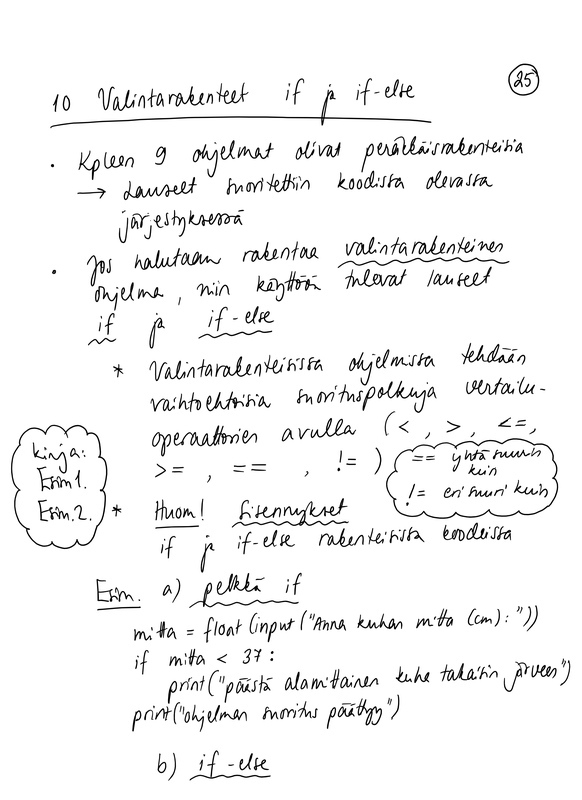 25
10 Valintarakenteet if ja if-else
• Kpleen 9 ohjelmat olivat peräkkäisrakenteisia
→ Lauseet suoritettiin koodissa olevassa
järjestyksessä
• Jos halutaan rakentaa valintarakenteinen
ohjelma, niin käyttöön tulevat lauseet
if ja if-else
* Valintarakenteisissa ohjelmissa tehdään
vaihtoehtoisia suorituspolkuja vertailu-
operaattorien avulla (< , > , <=,
>= , == , != )
== yhtä suuri
kuin
!= eri suuri kuin
kirja:
Esim 1.
Esim. 2.
* Huom! Sisennykset
if ja if-else rakenteisissa koodeissa
Esim. a) pelkkä if
mitta = float (input ("Anna kuhan mitta (cm): "))
if mitta < 37:
print("päästä alamittainen kuha takaisin järveen")
print("ohjelman suoritus päättyy")
b) if-else